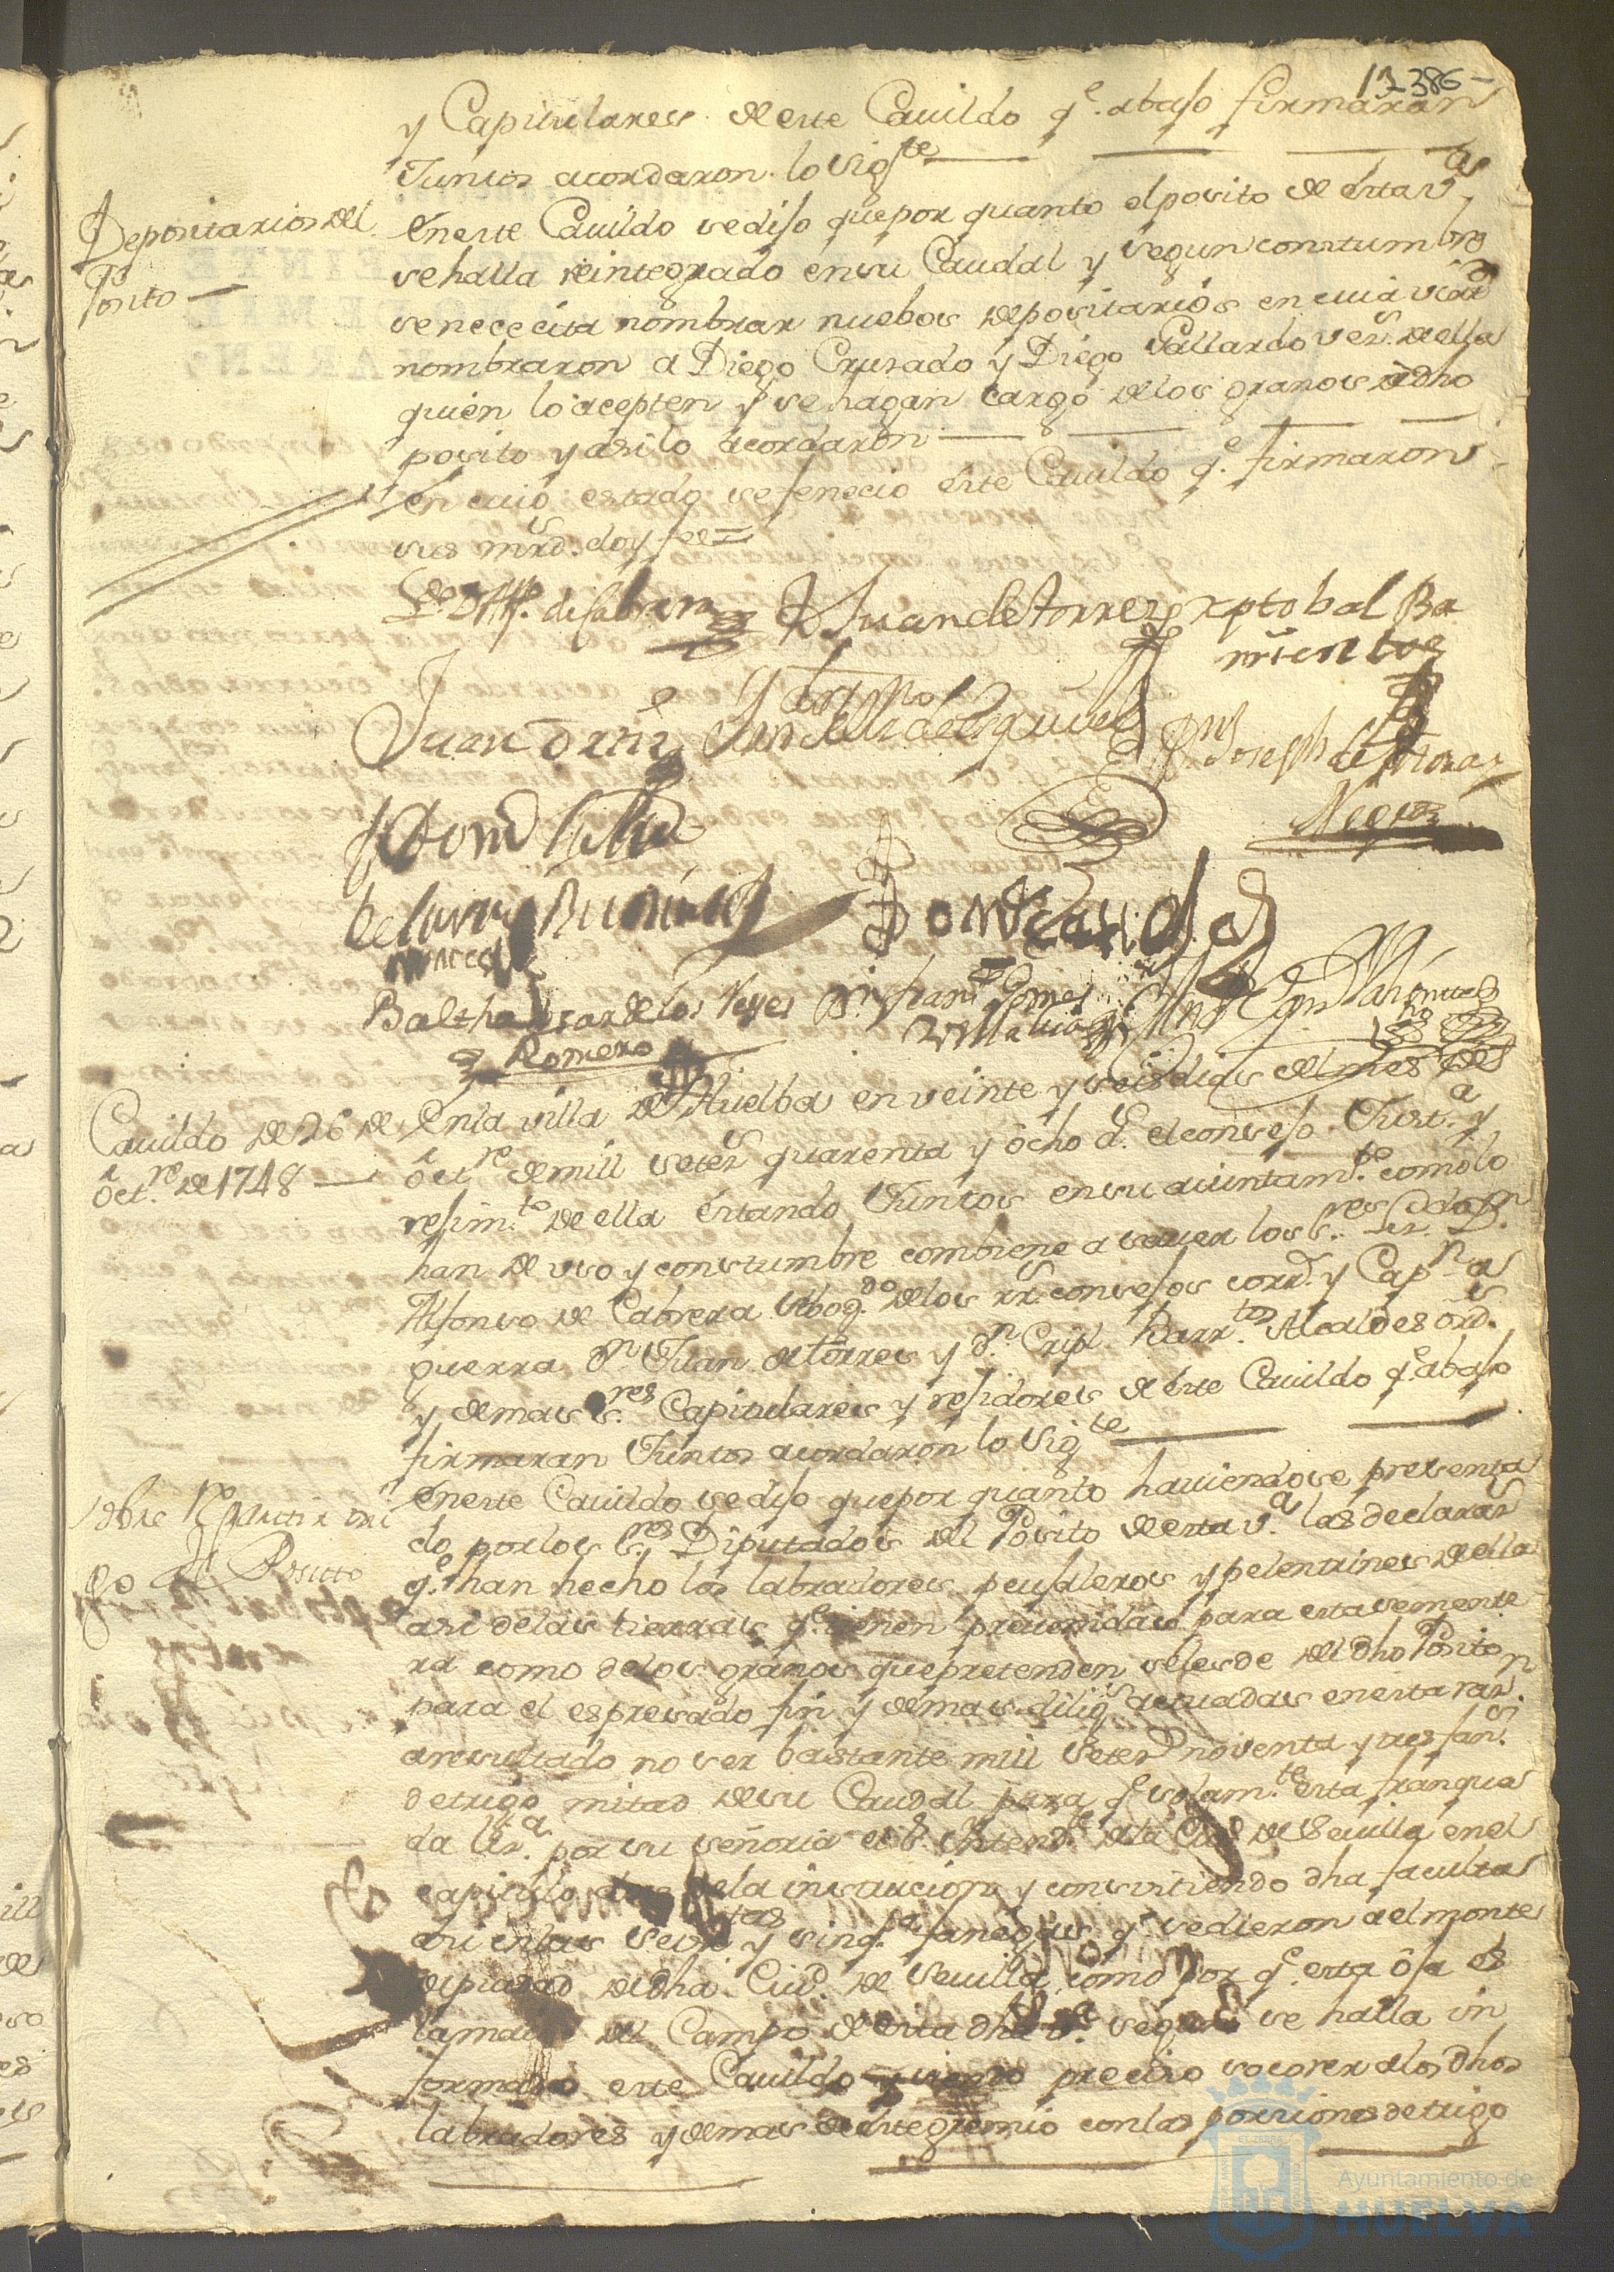 12 386-
y Capitulares de este Cauildo q.e abajo firmaran
Juntos acordaron lo sig.te
Depositarios del
Posito
En este Cauildo se dijo que por quanto el posito de esta v.a
se halla reintegrado en su Caudal y segun constumbre
se nececita nombrar nuebos depositarios en cuia virtd
nombraron a Diego Crusado y Diego Gallardo vez.s de ella
quien lo acepten y se hagan cargo de los granos de dho
posito y asi lo acordaron
En cuio estado se fenecio este Cauildo q.e firmaron
sus mrds. doy fee =
Juan de Torres
Xptobal Ba
rrientos
Joseph de
Negron
Balthasar de los Reyes
Romero
Cauildo de 26 de
Oct.re de 1748
En la villa de Huelba en veinte y seis dias del mes de
Oct.re de mill setes quarenta y ocho d.s el consejo Just.a y
rejim.to de ella estando Juntos en su aiuntam.to como lo
han de uso y constumbre combiene a sauer los S.res Lz.do D.n
Alfonso de Cabrera Abog.do de los rr.s consejos corr.r y Cap.n a
guerra D.n Juan de torres y D.n Cripl. Barr.tos Alcaldes ord.s
y demas S.res Capitulares y rejidores de este Cauildo q.e abajo
firmaran Juntos acordaron lo Sig.te
Sobre Repartimi
go del Posito
En este Cauildo se dijo que por quanto hauiendose presenta
do por los S.res Diputados del Posito de esta v.a las declaraz.s
q.e han hecho los labradores, peujaleros y pelentrines de ella
asi de las tierras q.e tienen preuenidas para esta semente
ra como de los granos que pretenden seles de del dho Posito
para el espresado fin y demas dilig.s actuadas en esta raz.n
a resultado no ser bastante mill setes noventa y tres fan.s
de trigo mitad de su Caudal para q.e solam.te esta franquea
da por su señoria el S.r Intend.te de la Ciud de Seuilla en el
capitulo de la instrucion y consistiendo dha facultad
asi en las y sinq.ta fanegas q.e se dieron a el monte
de piedad de dha Ciud. de Seuilla, como por q.e esta oja es
la maior del Campo de esta dha v.a segun se halla in
formado este Cauildo y siendo preciso socorer a los dhos
labradores y demas de este gremio con las porsiones de trigo
Ayuntamiento de
HUELVA